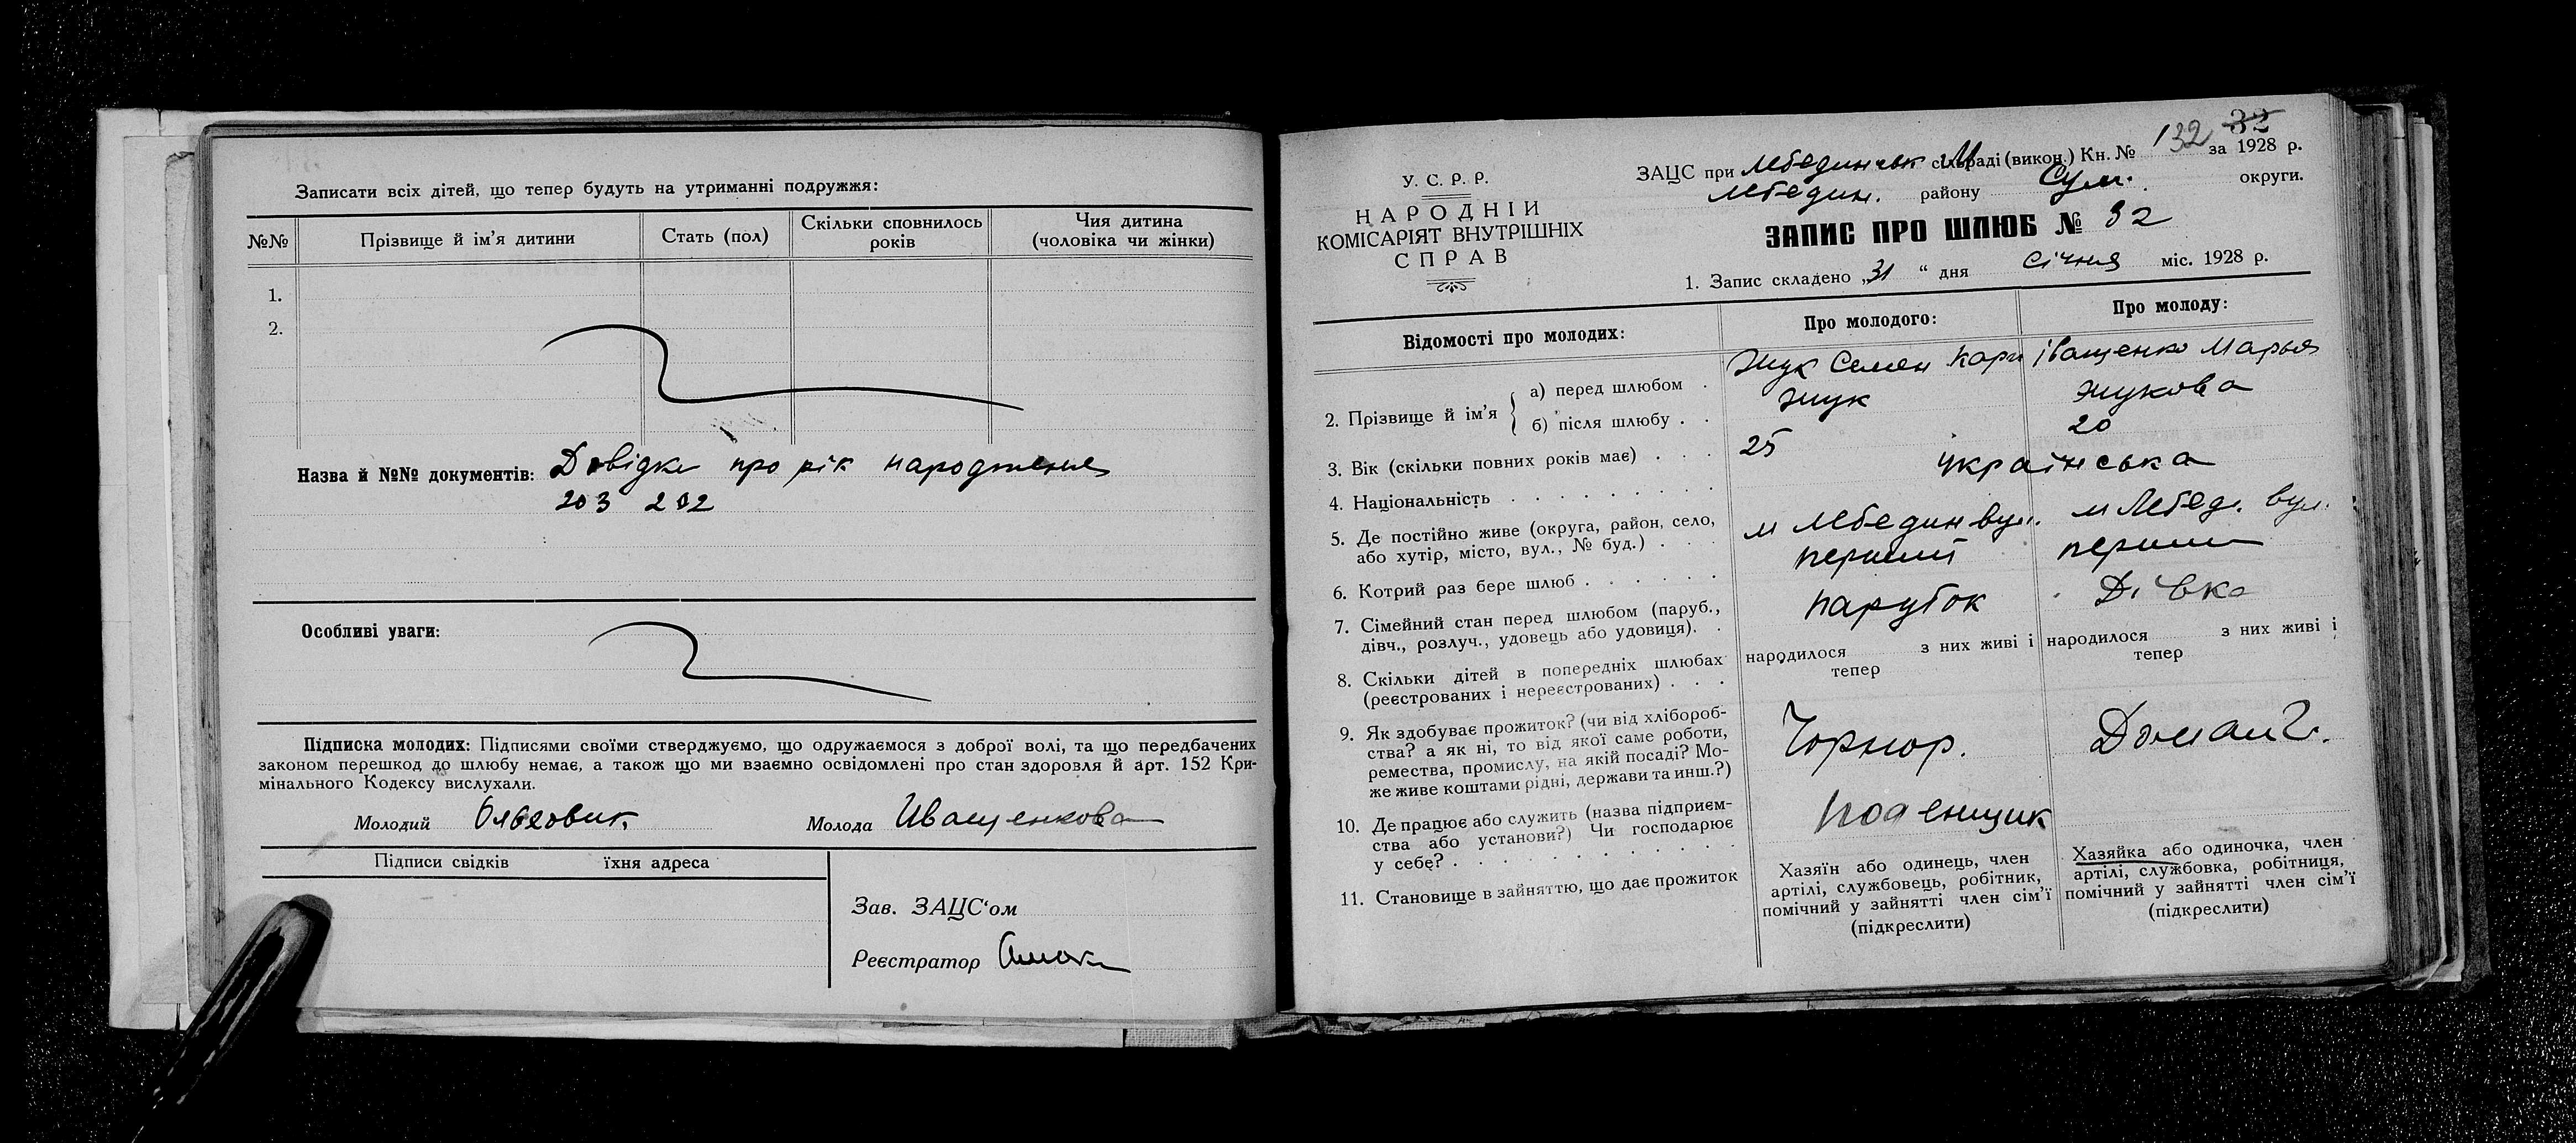 Записати всіх дітей, що тепер будуть на утриманні подружжя:
№№ Прізвище й ім'я дитини Стать (пол) Скільки сповнилось років Чия дитина (чоловіка чи жінки)
1.
2.
Назва й №№ документів: Довідки про рік народження
203 202
Особливі уваги:
Підписка молодих: Підписями своїми стверджуємо, що одружаємося з доброї волі, та що передбачених
законом перешкод до шлюбу немає, а також що ми взаємно освідомлені про стан здоровля й арт. 152 Кри-
мінального Кодексу вислухали.
Молодий Молода Иващенкова
Підписи свідків їхня адреса
Зав. ЗАЦС'ом
Реєстратор
132 32
У. С. Р. Р.
НАРОДНІЙ
КОМІСАРІЯТ ВНУТРІШНІХ
СПРАВ
ЗАЦС при Лебединськ М сільраді (викон.) Кн. № за 1928 р.
Лебедин. району Сум. округи.
ЗАПИС ПРО ШЛЮБ № 32
1. Запис складено „31“ дня січня міс. 1928 р.
Відомості про молодих: Про молодого: Про молоду:
2. Прізвище й ім'я { а) перед шлюбом . Жук Семен Карп Іващенко Марья
б) після шлюбу . . Жук Жукова
3. Вік (скільки повних років має) . . . 25 20
4. Національність . . . . . . . . . українська
5. Де постійно живе (округа, район, село,
або хутір, місто, вул., № буд.) . . . м Лебедин вул. м Лебед. вул.
6. Котрий раз бере шлюб . . . . . . перший перший
7. Сімейний стан перед шлюбом (паруб.,
дівч., розлуч., удовець або удовиця). . парубок Дівка
8. Скільки дітей в попередніх шлюбах
(реєстрованих і нереєстрованих) . . . народилося з них живі і тепер народилося з них живі і тепер
9. Як здобуває прожиток? (чи від хлібороб-
ства? а як ні, то від якої саме роботи,
ремества, промислу, на якій посаді? Мо-
же живе коштами рідні, держави та инш.?) Чорнор. Домаш.
10. Де працює або служить (назва підприєм-
ства або установи?) Чи господарює
у себе? . . . . . . . . . . . . поденщик
11. Становище в зайняттю, що дає прожиток
Хазяїн або одинець, член
артілі, службовець, робітник,
помічний у зайнятті член сім'ї
(підкреслити)
Хазяйка або одиночка, член
артілі, службовка, робітниця,
помічний у зайнятті член сім'ї
(підкреслити)